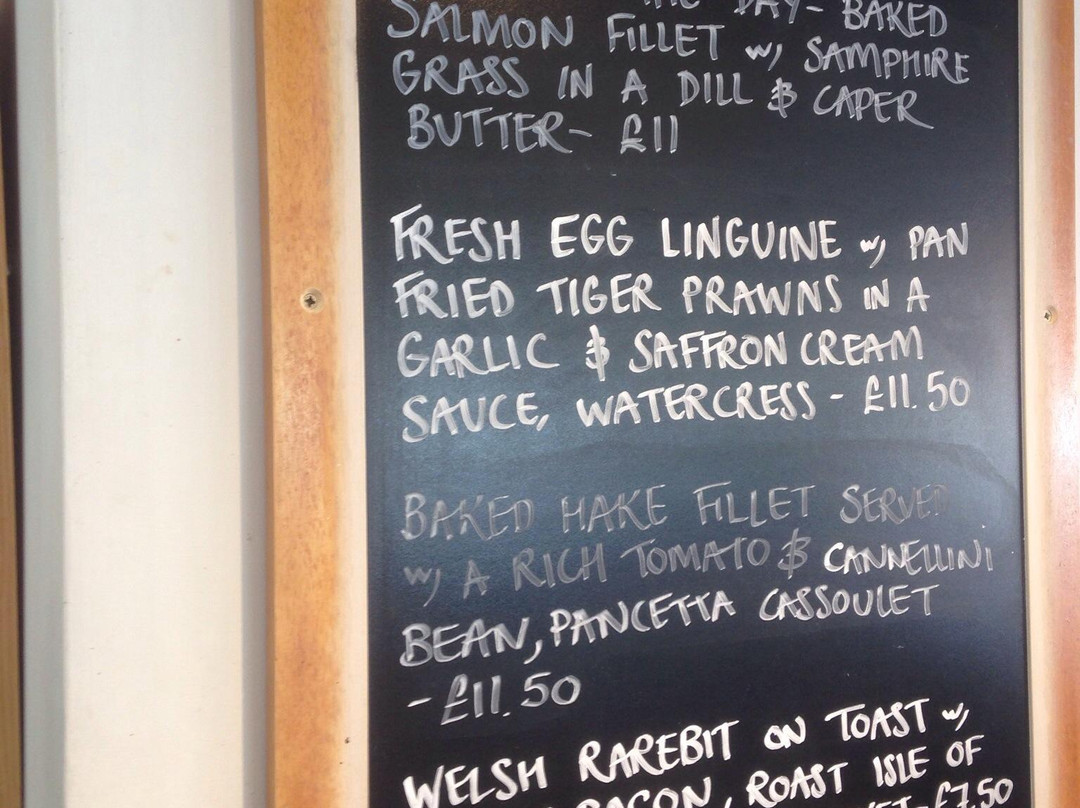 THE DAY- BAKED
SALMON FILLET w/ SAMPHIRE
GRASS IN A DILL & CAPER
BUTTER- £11
FRESH EGG LINGUINE w/ PAN
FRIED TIGER PRAWNS IN A
GARLIC & SAFFRON CREAM
SAUCE, WATERCRESS - £11.50
BAKED HAKE FILLET SERVED
w/ A RICH TOMATO & CANNELLINI
BEAN, PANCETTA CASSOULET
- £11.50
WELSH RAREBIT ON TOAST w/
BACON, ROAST ISLE OF
£7.50